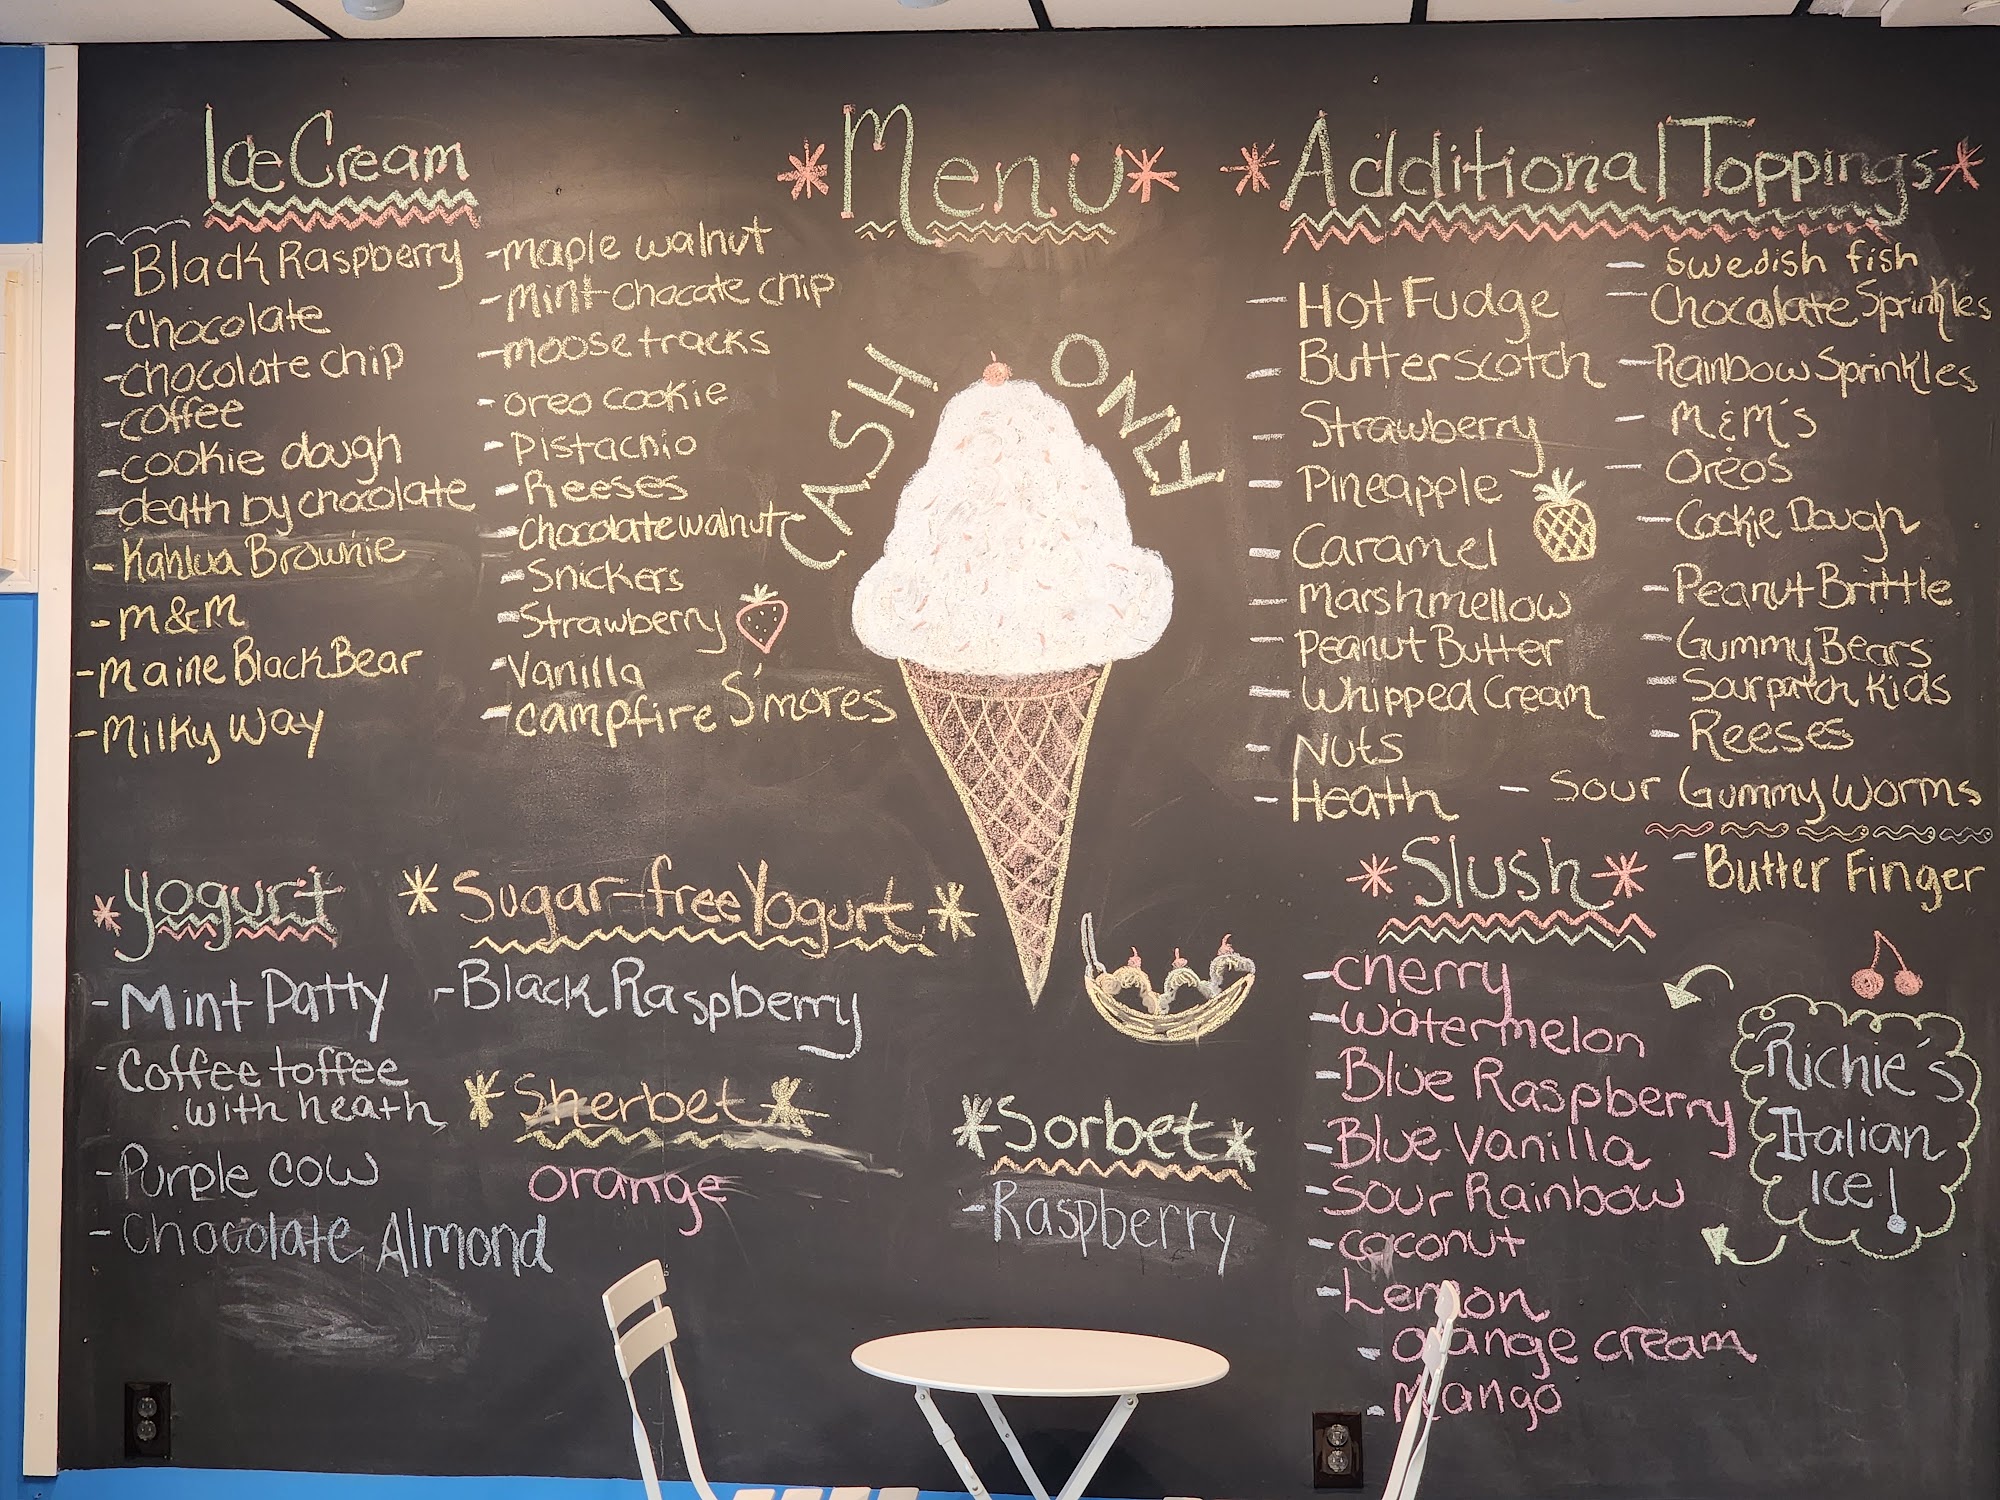 Ice Cream
- Black Raspberry
- Chocolate
- chocolate chip
- coffee
- cookie dough
- death by chocolate
- Kahlua Brownie
- M&M
- Maine Black Bear
- Milky Way
- maple walnut
- Mint chocate chip
- moose tracks
- oreo cookie
- Pistachio
- Reeses
- Chocolate walnut
- Snickers
- Strawberry
- Vanilla
- campfire S'mores
* Menu *
CASH ONLY
* Additional Toppings *
- Hot Fudge
- Butterscotch
- Strawberry
- Pineapple
- Caramel
- Marshmellow
- Peanut Butter
- Whipped Cream
- Nuts
- Heath
- Swedish fish
- Chocolate Sprinkles
- Rainbow Sprinkles
- M&M's
- Oreos
- Cookie Dough
- Peanut Brittle
- Gummy Bears
- Sour patch Kids
- Reeses
- Sour Gummy Worms
- Butter Finger
* Yogurt
- Mint Patty
- Coffee toffee
with heath
- Purple cow
- Chocolate Almond
* Sugar-free Yogurt *
- Black Raspberry
* Sherbet *
orange
* Sorbet *
- Raspberry
* Slush *
- cherry
- watermelon
- Blue Raspberry
- Blue Vanilla
- Sour Rainbow
- coconut
- Lemon
- orange cream
- Mango
Richie's
Italian
Ice!